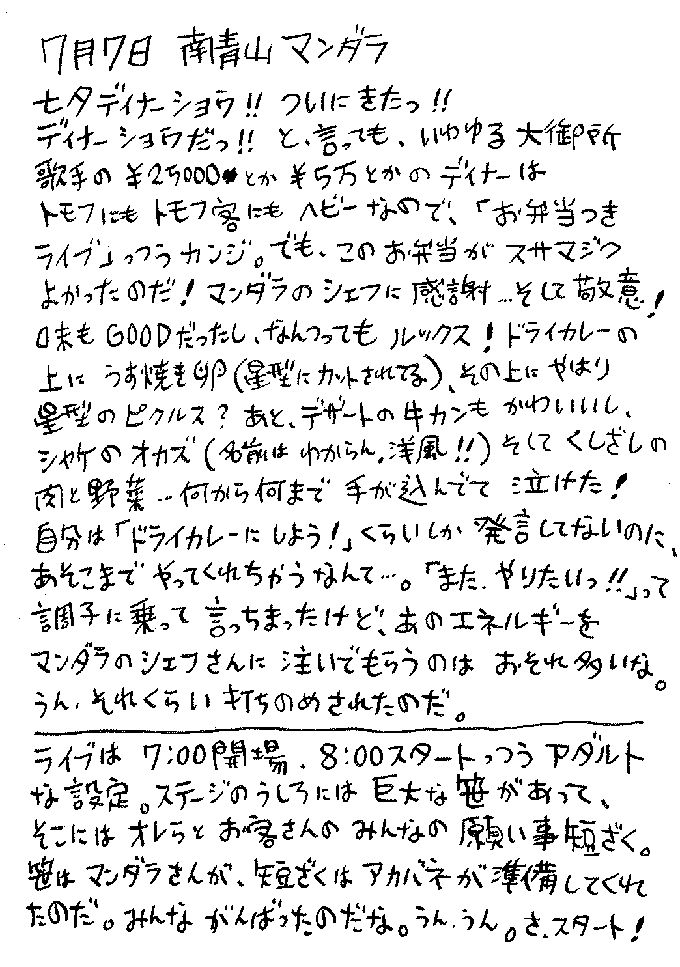 7月7日 南青山 マンダラ
七夕ディナーショウ!! ついにきたっ!!
ディナーショウだっ!! と、言っても、いわゆる大御所
歌手の¥25000とか¥5万とかのディナーは
トモフにもトモフ客にもヘビーなので、「お弁当つき
ライブ」っつうカンジ。でも、このお弁当がスサマジク
よかったのだ!マンダラのシェフに感謝…そして敬意!
味もGOODだったし、なんつってもルックス!ドライカレーの
上にうす焼き卵(星型にカットされてる)、その上にやはり
星型のピクルス?あと、デザートの牛カンもかわいいし、
シャケのオカズ(名前はわからん。洋風!!)そしてくしざしの
肉と野菜…何から何まで手が込んでて泣けた!
自分は「ドライカレーにしよう!」くらいしか発言してないのに、
あそこまでやってくれちがうなんて…。「また、やりたいっ!!」って
調子に乗って言っちまったけど、あのエネルギーを
マンダラのシェフさんに注いでもらうのはおそれ多いな。
うん、それくらい打ちのめされたのだ。
ライブは7:00開場、8:00スタートっつうアダルト
な設定。ステージのうしろには巨大な笹があって、
そこにはオレらとお客さんのみんなの願い事短ざく。
笹はマンダラさんが、短ざくはアカバネが準備してくれ
たのだ。みんながんばったのだな。うん、うん。さ、スタート!